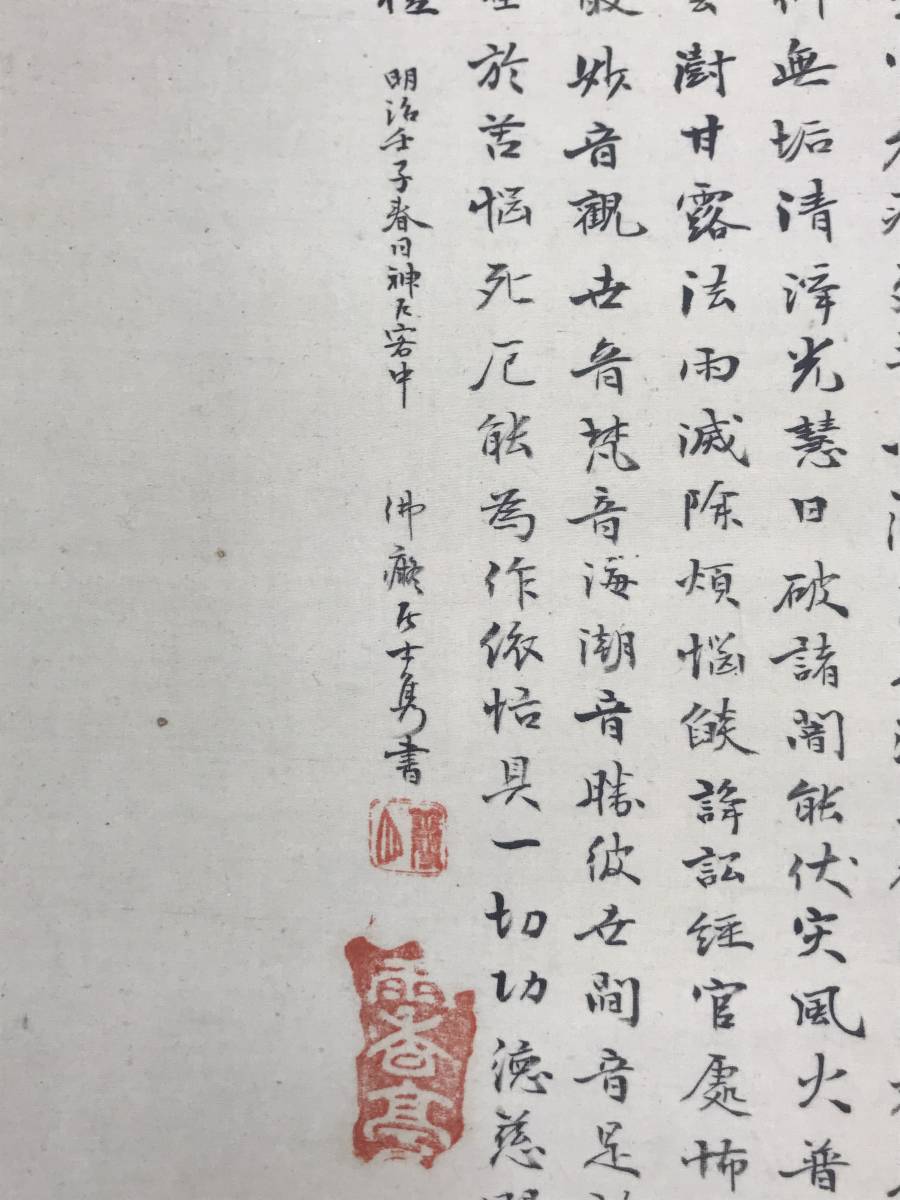 無垢清浄光慧日破諸闇能伏灾風火普
澍甘露法雨滅除煩惱燄諍訟經官處怖
妙音觀世音梵音海潮音勝彼世間音是
於苦惱死厄能為作依怙具一切功德慈
明治壬子春日神戶客中
佛癡居士隽書
雨香亭